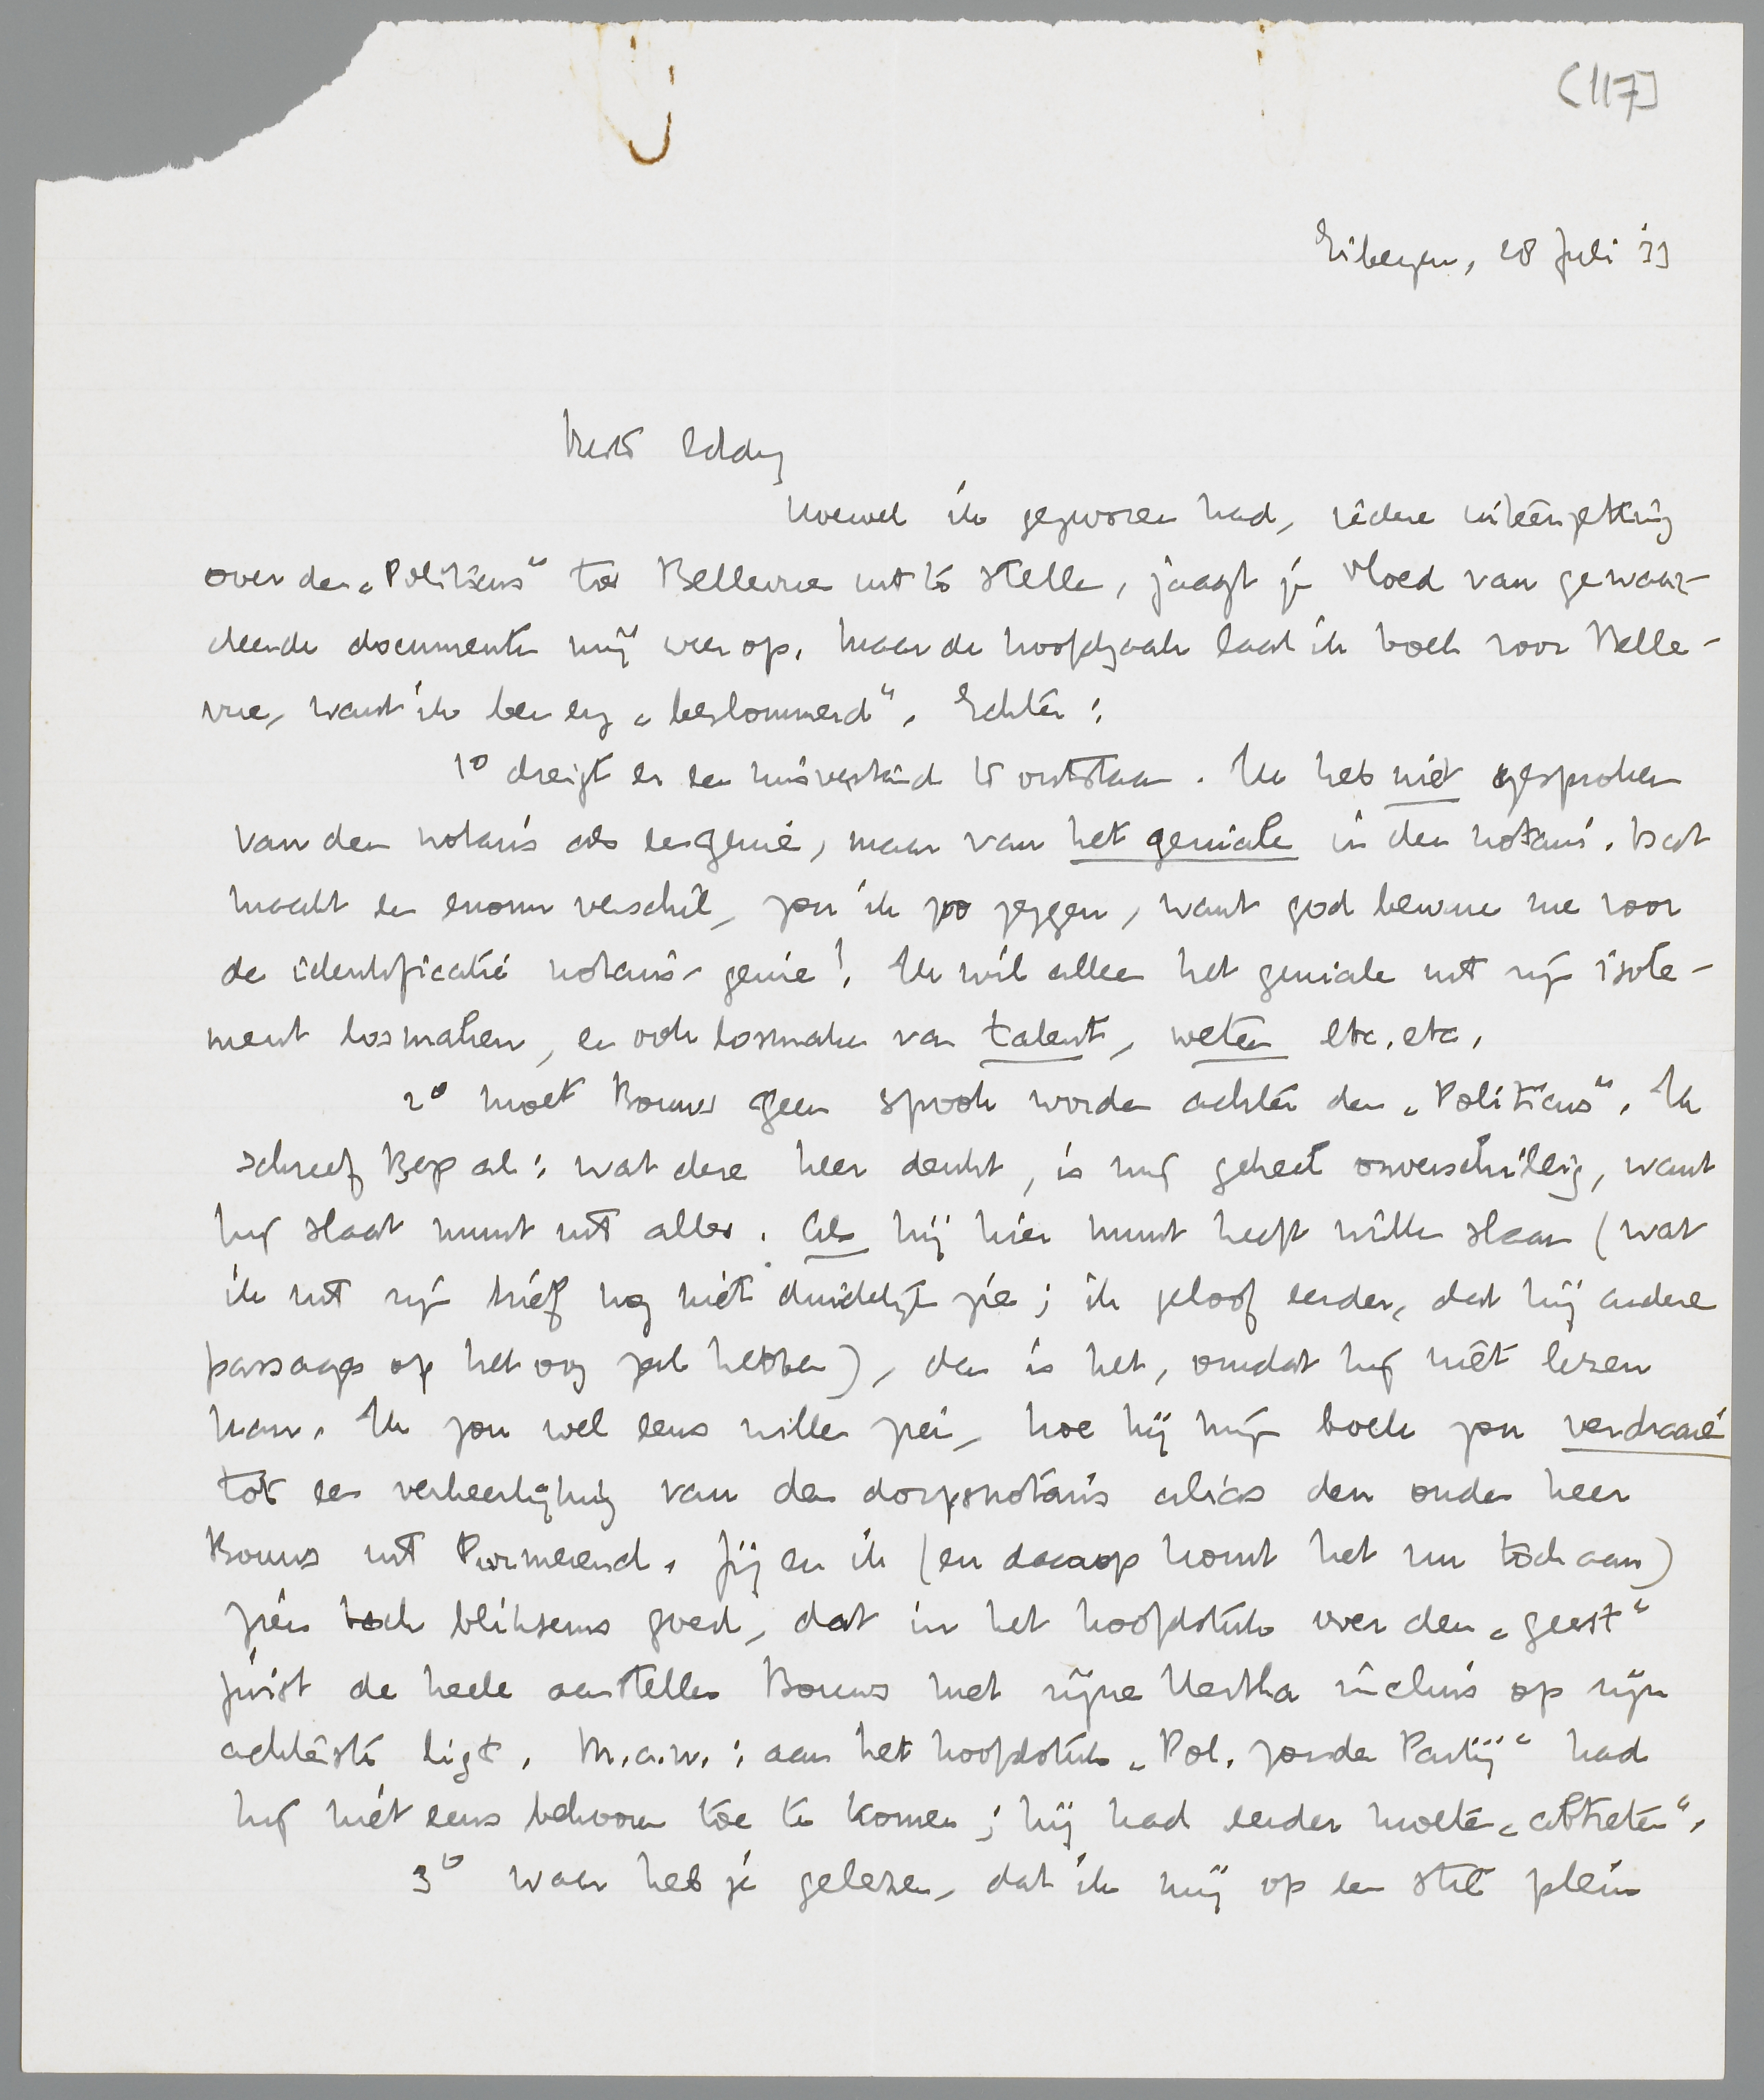 (117]
Eibergen, 28 Juli '33
Beste Eddy
Hoewel ik gezworen had, iedere uiteenzetting
over den „Politicus" tot Bellevue uit te stellen, jaagt je vloed van gewaar-
deerde documenten mij weer op. Maar de hoofdzaak laat ik toch voor Belle-
vue, want ik ben erg „beslommerd". Echter:
1° dreigt er een misverstand te ontstaan. Ik heb niet gesproken
van den notaris als een genie, maar van het geniale in den notaris. Dat
maakt een enorm verschil, zou ik zoo zeggen, want god beware me voor
de identificatie notaris-genie! Ik wil alleen het geniale uit zijn isole-
ment losmaken, en ook losmaken van talent, weten etc. etc.
2° moet Bouws geen spook worden achter den „Politicus". Ik
schreef Bep al: wat deze heer denkt, is mij geheel onverschillig, want
hij slaat munt uit alles. Als hij hier munt heeft willen slaan (wat
ik uit zijn brief nog niet duidelijk zie; ik geloof eerder, dat hij andere
passages op het oog zal hebben), dan is het, omdat hij niet lezen
kan. Ik zou wel eens willen zien, hoe hij mijn boek zou verdraaien
tot een verheerlijking van den dorpsnotaris alias den ouden heer
Bouws uit Purmerend. Jij en ik (en daarop komt het nu toch aan)
zien toch bliksems goed, dat in het hoofdstuk over den „geest"
juist de heele aansteller Bouws met zijne Hertha incluis op zijn
achterste ligt. M.a.w.: aan het hoofdstuk „Pol. zonder Partij" had
hij niet eens behooren toe te komen; hij had eerder moeten „abtreten".
3° waar heb je gelezen, dat ik mij op een stil plein